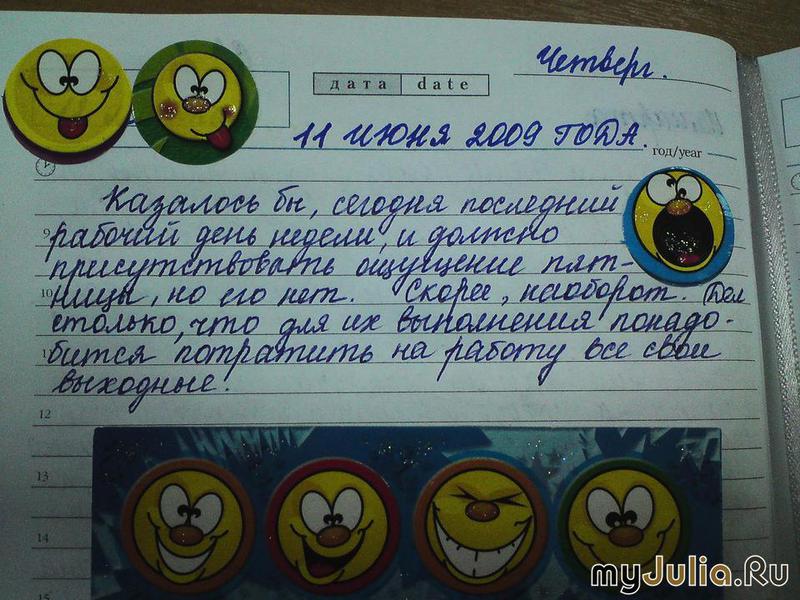 Четверг.
дата date
11 ИЮНЯ 2009 ГОДА. год/year
Казалось бы, сегодня последний
9 рабочий день недели, и должно
присутствовать ощущение пят-
10 ницы, но его нет. Скорее, наоборот. Дел
столько, что для их выполнения понадо-
бится потратить на работу все свои
выходные.
12
13
14
15
myJulia.Ru